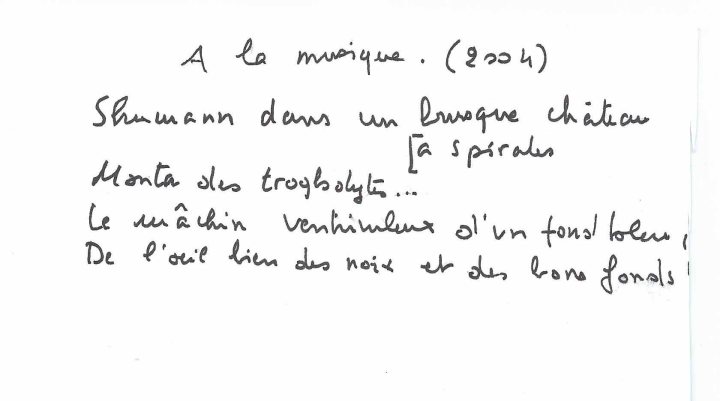 A la musique. (2004)
Shumann dans un brusque château
[a spirales
Monta des troglodytes...
Le mâchin ventriculeux d'un fond bleu,
De l'oeil bien des noix et des bons fonds